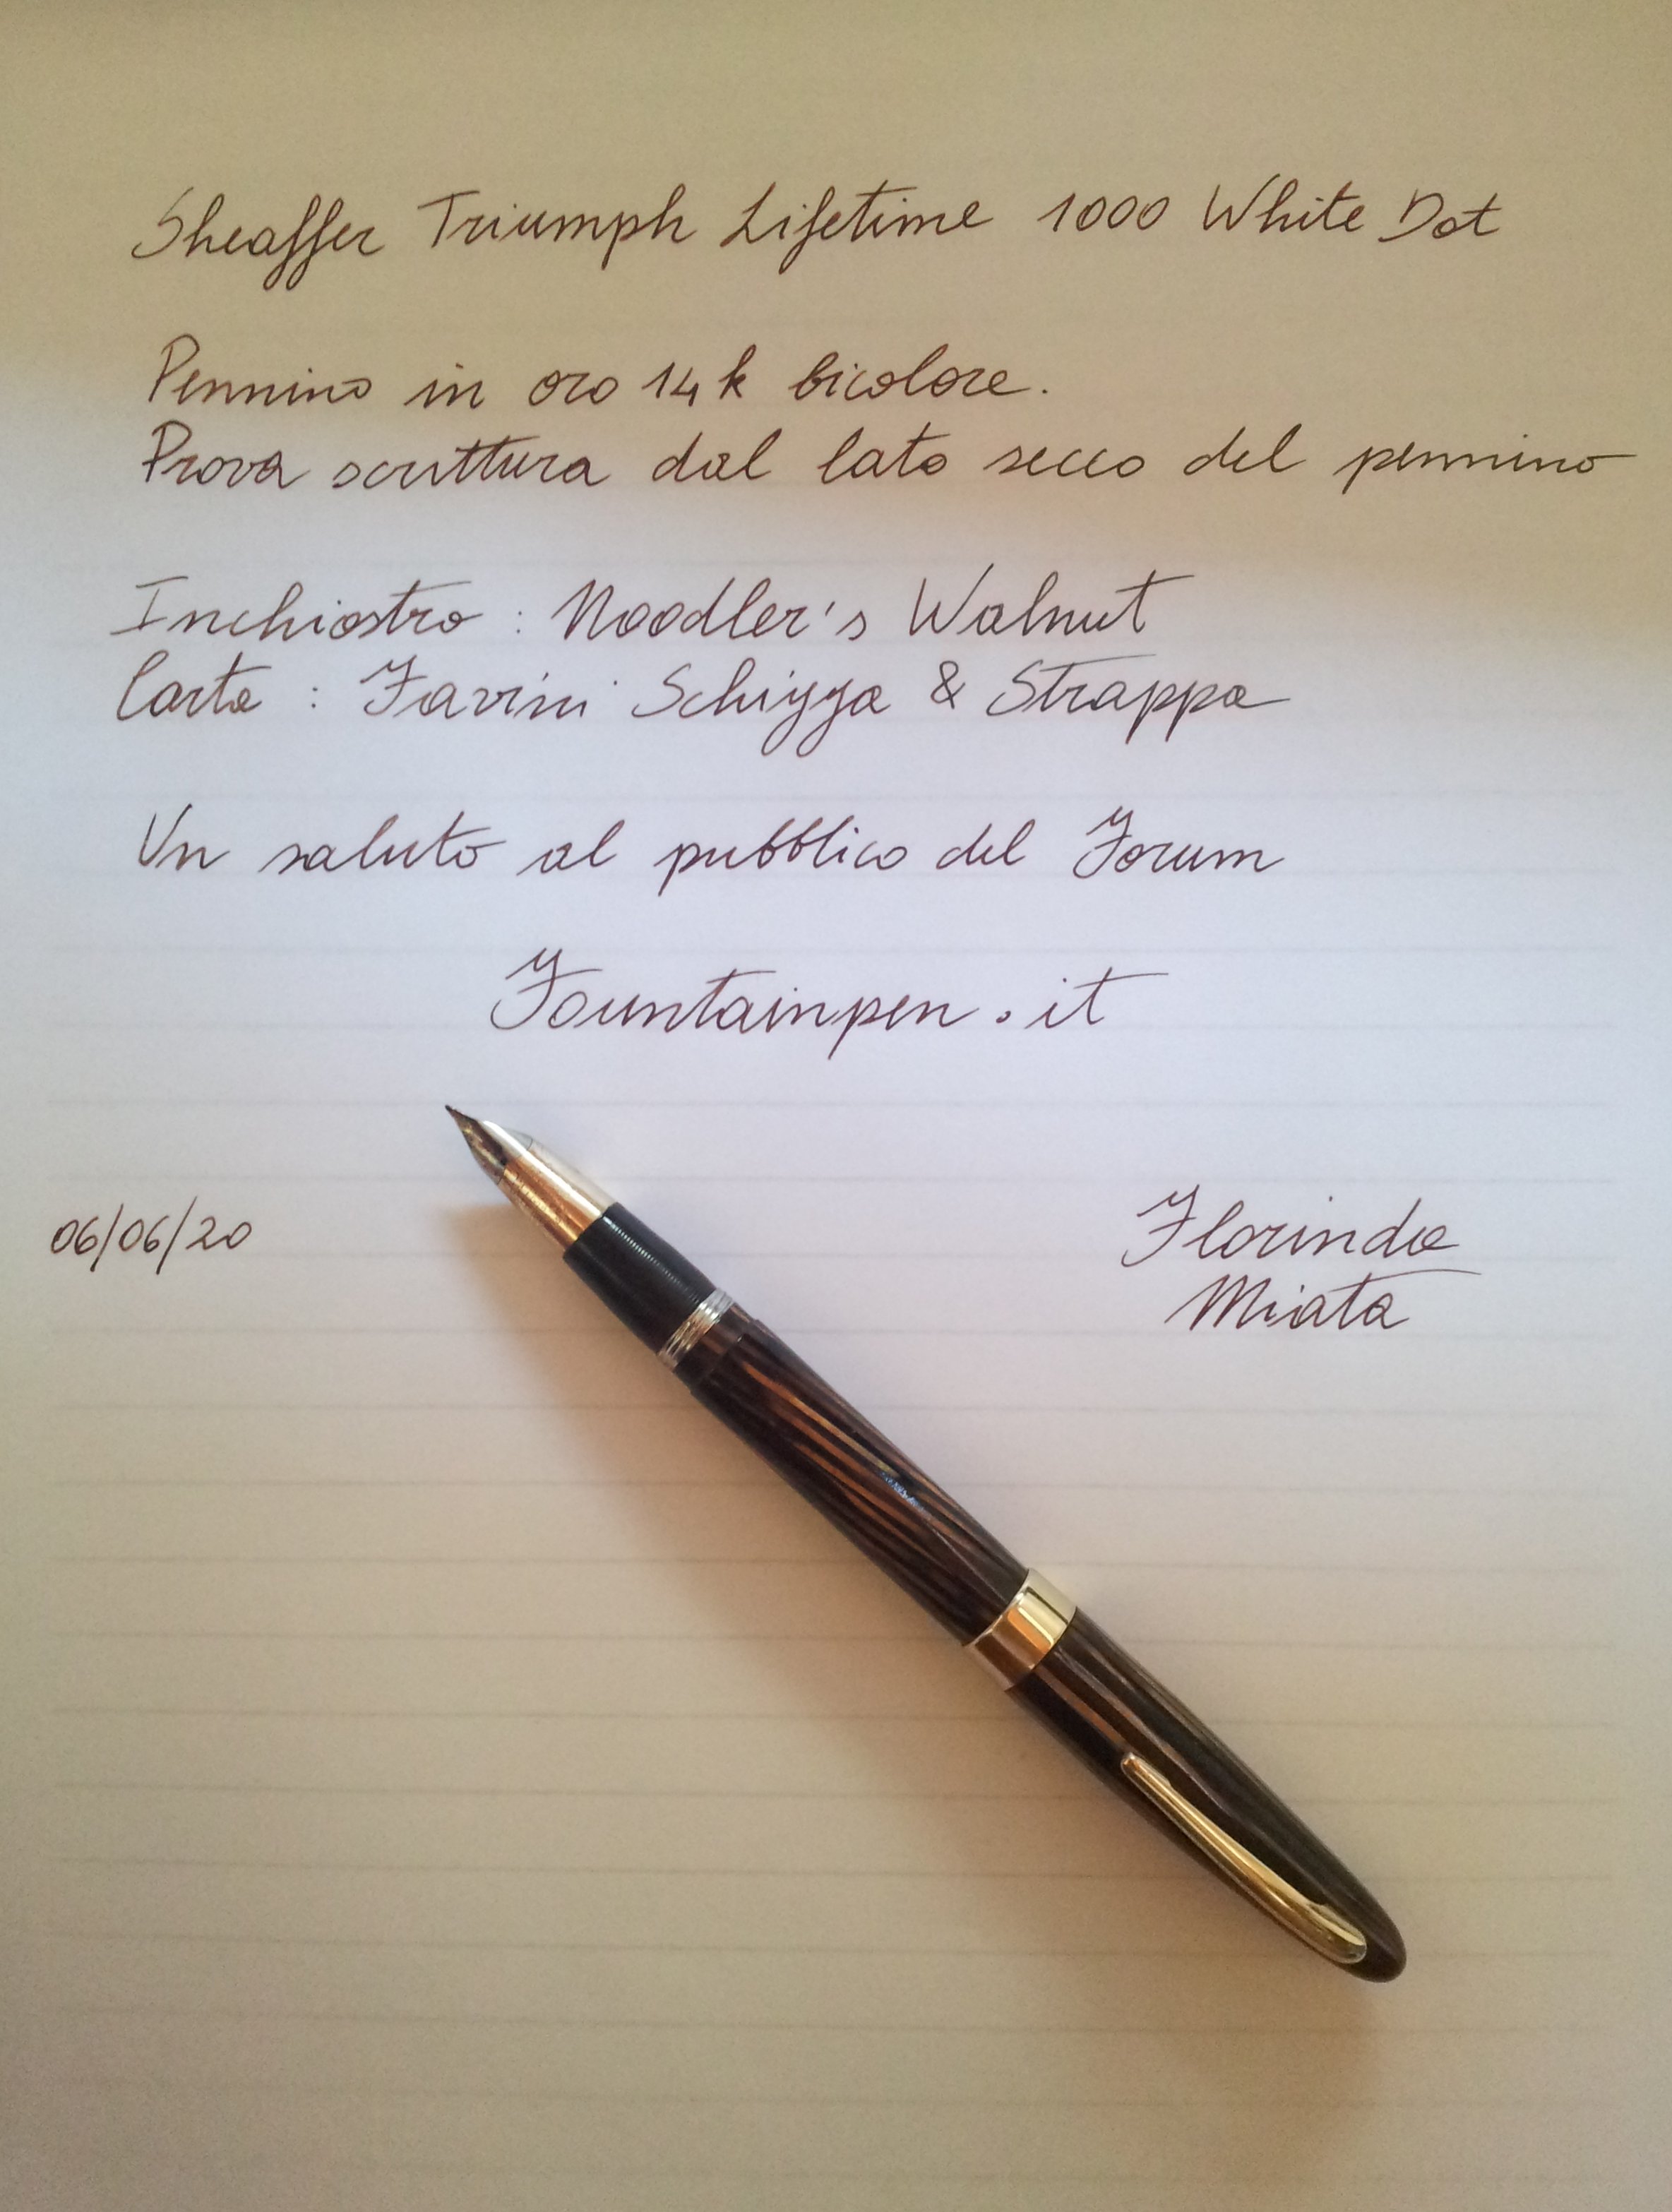 Sheaffer Triumph Lifetime 1000 White Dot
Pennino in oro 14k bicolore.
Prova scrittura dal lato secco del pennino
Inchiostro : Noodler's Walnut
Carta : Favini Schizza & Strappa
Un saluto al pubblico del Forum
Fountainpen.it
06/06/20
Florinda
Miata